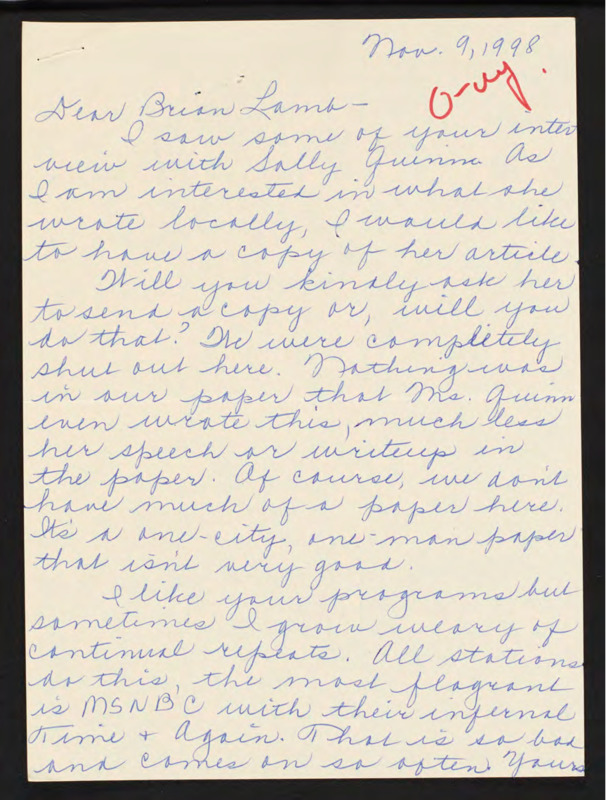 Nov. 9, 1998
Dear Brian Lamb-
I saw some of your inter
view with Sally Quinn. As
I am interested in what she
wrote locally, I would like
to have a copy of her article.
Will you kindly ask her
to send a copy or, will you
do that? We were completely
shut out here. Nothing was
in our paper that Ms. Quinn
even wrote this, much less
her speech or writeup in
the paper. Of course, we don't
have much of a paper here.
It's a one-city, one-man paper
that isn't very good.
I like your programs but
sometimes I grow weary of
continual repeats. All stations
do this, the most flagrant
is MSNBC with their infernal
Time & Again. That is so bad
and comes on so often. Yours